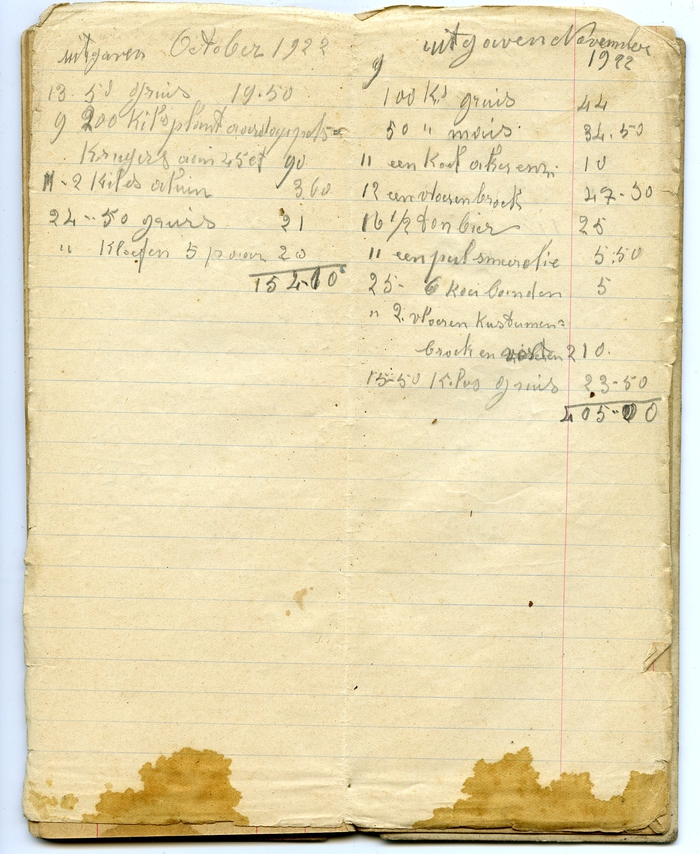 uitgaven October 1922
13. 50 gruis 19.50
9 200 Kilo plant aardappels=
Krugers aan 45ct 90
11-2 Kilos aluin 3.60
24-50 gruis 21
" Kloefen 5 paar 20
154-10
uitgaven November
1922
9
100 Ks gruis 44
50 " mais 34.50
" een 10
12 een vloeren broek 47-50
16 1/2 ton bier 25
" een 5.50
25- 6 Koebanden 5
" 2. vloeren Kustumen=
broeken 210.
15-50 Kilos gruis 23-50
405-00